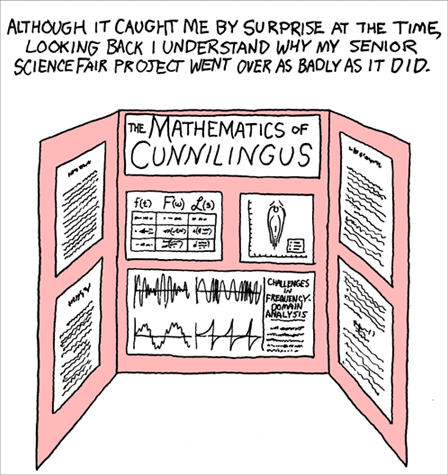 ALTHOUGH IT CAUGHT ME BY SURPRISE AT THE TIME,
LOOKING BACK I UNDERSTAND WHY MY SENIOR
SCIENCE FAIR PROJECT WENT OVER AS BADLY AS IT DID.
THE MATHEMATICS OF
CUNNILINGUS
f(t) F(ω) L(s)
CHALLENGES
IN
FREQUENCY-
DOMAIN
ANALYSIS